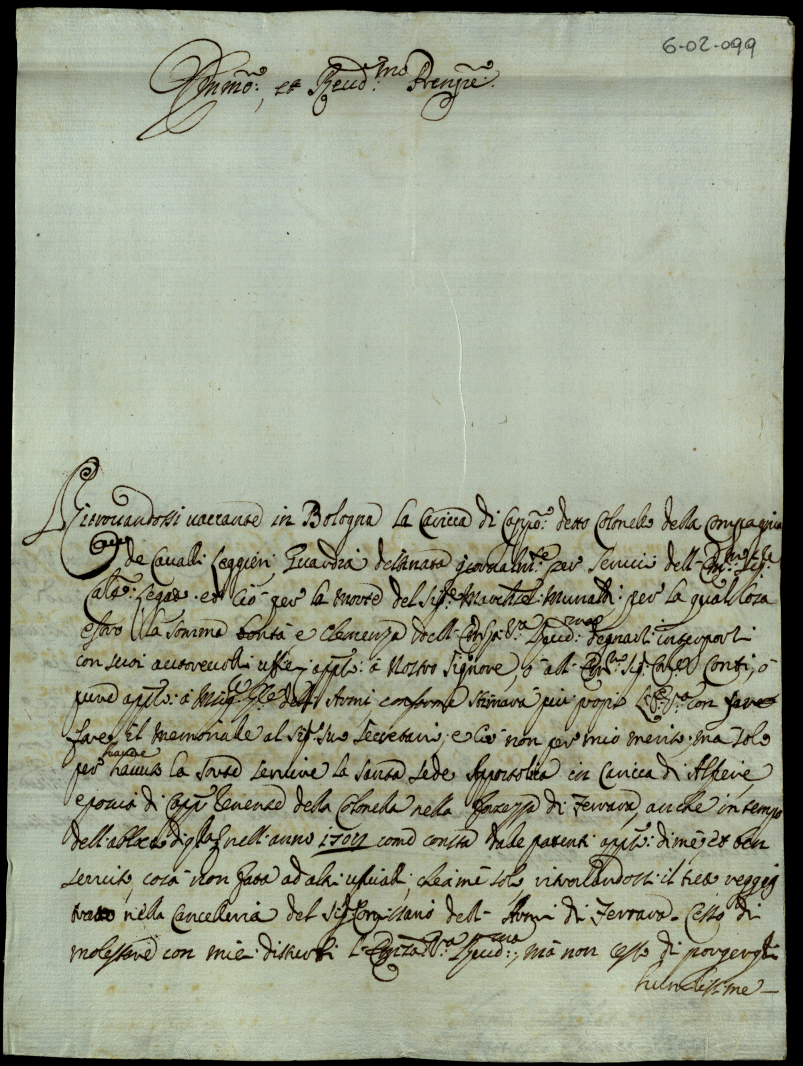 6-02-099
Emmo: et Reud:mo Prenpe:
Ritrouandosi uaccante in Bologna la Carica di Cappo: detto Colonello della Compagnia
de Caualli Leggieri giornalmte per Seruicii dell Emo Sig:
Leg: et Ciò per la morte del Sigr Marchese Munatti per la qual Cosa
la Somma bontà e Clemenza dell Reud:ma degnarsi interporli
con suoi autoreuoli uffizi appo: à Nostro Signore, ò all Emo Sigr Conti, ò
pure appo: à dell Armi conforme Stimarà più propio con
fare il memoriale al Sigr Suo Secretario, e Ciò non per mio merito ma Solo
per hauere hauuto la Sorte Seruire la Santa Sede Appostolica in Carica di Alfiere,
e poscia di Cappo Tenente della Colonella nella Fortezza di Ferrara, anche in tempo
dell nell anno come consta dale patenti appo: di me et ben
seruito, cosa non fatta ad altri ufficiali che à me solo ritrouandosi il tutto reggis
trato nella Cancellaria del Sigr Comissario dell Armi di Ferrara. Cesso di
molestare con miei discursi l Reud:ma, mà non cesso di porgergli
humilissime